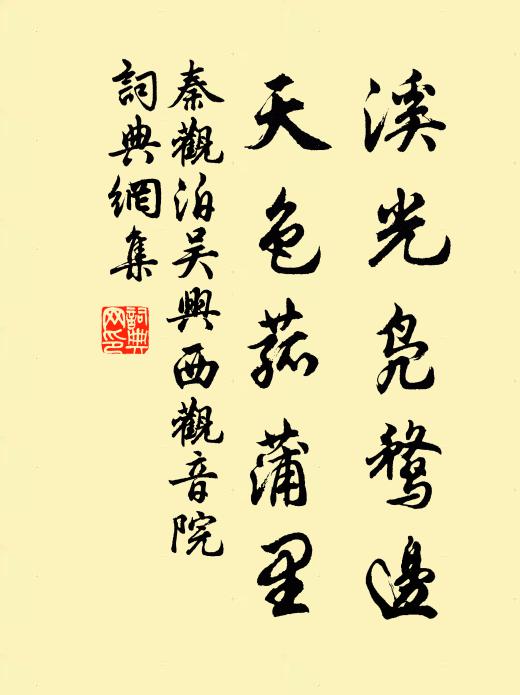 溪光鳧鶩邊
天色菰蒲里
秦觀泊吴興西觀音院
詞典網集
詞典网印